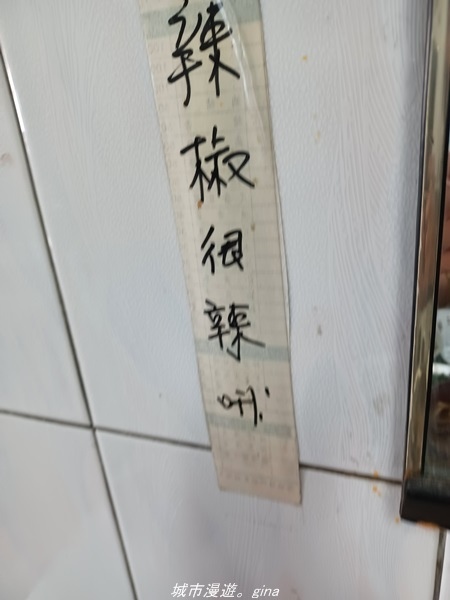 辣椒很辣哦!
城市漫遊。gina